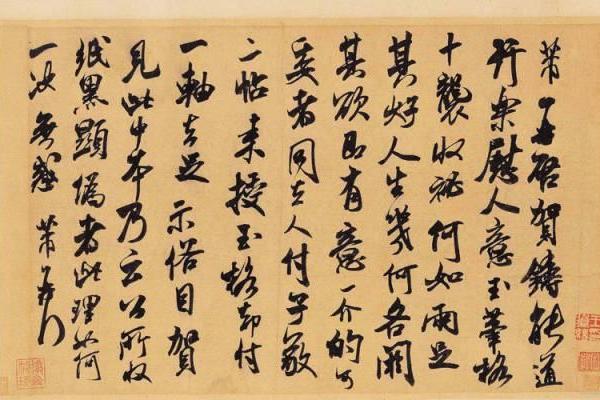 芾再啓賀鑄能道
行樂慰人意玉筆格
十襲收祕何如兩足
其好人生幾何各闕
其欲即有意一介的可
委者同去人付子敬
二帖来授玉格却付
一軸去足示俗目賀
見此中本乃云公所收
紙黑顯偽者此理如何
一決無惑 芾